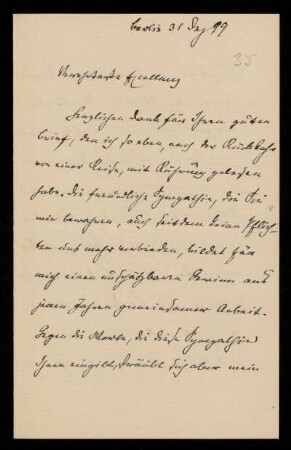 Berlin 31 Dez 99
35
Verehrteste Excellenz
Herzlichen Dank für Ihren guten
Brief, den ich soeben, nach der Rückkehr
von einer Reise, mit Rührung gelesen
habe. Die freundliche Sympathie, die Sie
mir bewahren, auch seitdem keine Pflich-
ten uns mehr verbinden, bildet für
mich einen unschätzbaren Gewinn aus
jenen Jahren gemeinsamer Arbeit.
Gegen die Worte, die diese Sympathie
Ihnen eingibt, sträubt sich aber mein